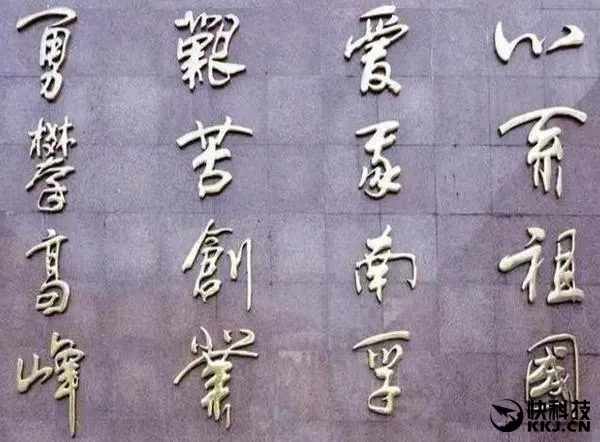 心系祖國
愛我南孚
艱苦創業
勇攀高峰
快科技
KKJ.CN